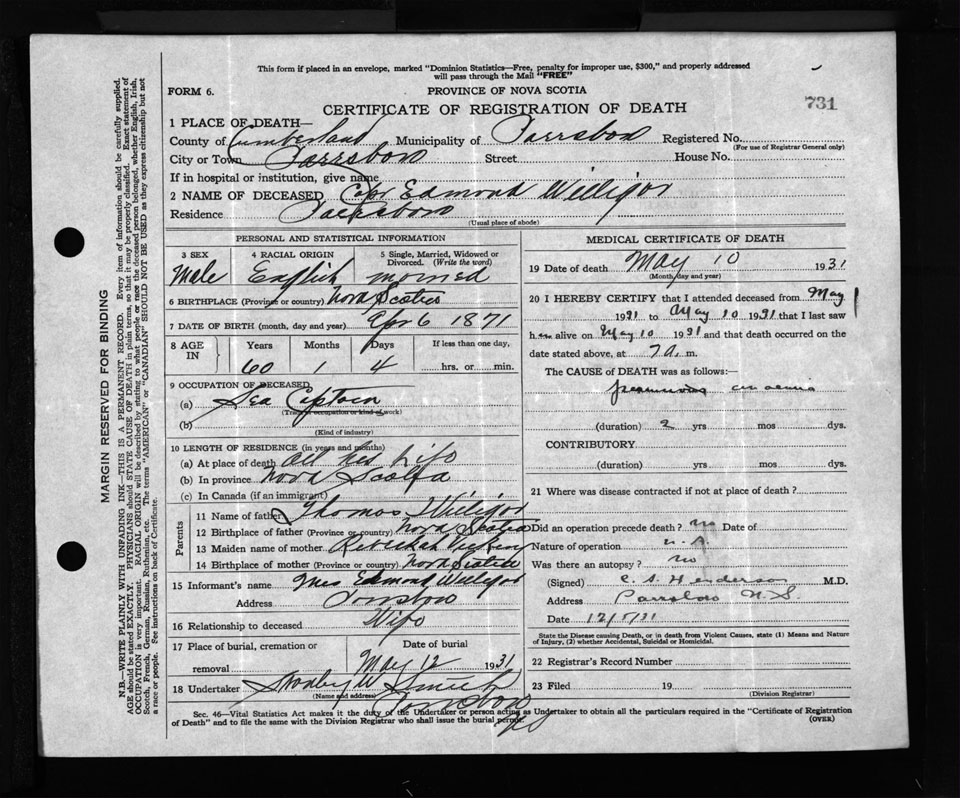 This form if placed in an envelope, marked "Dominion Statistics—Free, penalty for improper use, $300," and properly addressed
will pass through the Mail "FREE"
FORM 6.
PROVINCE OF NOVA SCOTIA
CERTIFICATE OF REGISTRATION OF DEATH
731
1 PLACE OF DEATH—
County of Cumberland Municipality of Parrsboro Registered No.
(For use of Registrar General only)
City or Town Parrsboro Street House No.
If in hospital or institution, give name
2 NAME OF DECEASED Capt Edmond Willigar
Residence Parrsboro
(Usual place of abode)
PERSONAL AND STATISTICAL INFORMATION
3 SEX 4 RACIAL ORIGIN 5 Single, Married, Widowed or Divorced. (Write the word)
Male English married
6 BIRTHPLACE (Province or country) Nova Scotia
7 DATE OF BIRTH (month, day and year) Apr 6 1871
8 AGE IN Years Months Days If less than one day,
60 1 4 hrs. or min.
9 OCCUPATION OF DECEASED
(a) Sea Captain
(Trade, occupation or kind of work)
(b)
(Kind of industry)
10 LENGTH OF RESIDENCE (in years and months)
(a) At place of death all his Life
(b) In province Nova Scotia
(c) In Canada (if an immigrant)
Parents
11 Name of father Thomas Willigar
12 Birthplace of father (Province or country) Nova Scotia
13 Maiden name of mother
14 Birthplace of mother (Province or country) Nova Scotia
15 Informant's name Mrs Edmond Willigar
Address Parrsboro
16 Relationship to deceased Wife
17 Place of burial, cremation or removal Date of burial
May 12 1931
18 Undertaker Smith
(Name and address) Parrsboro NS
MEDICAL CERTIFICATE OF DEATH
19 Date of death May 10 1931
(Month, day and year)
20 I HEREBY CERTIFY that I attended deceased from May 1
1931 to May 10 1931 that I last saw
him alive on May 10 1931 and that death occurred on the
date stated above, at 7 a. m.
The CAUSE of DEATH was as follows:—
pernicious anaemia
(duration) 2 yrs mos dys.
CONTRIBUTORY
(duration) yrs. mos. dys.
21 Where was disease contracted if not at place of death?
Did an operation precede death? no Date of
Nature of operation
Was there an autopsy? no
(Signed) C. S. Henderson M.D.
Address Parrsboro N.S.
Date 12/5/31
State the Disease causing Death, or in death from Violent Causes, state (1) Means and Nature
of Injury, (2) whether Accidental, Suicidal or Homicidal.
22 Registrar's Record Number
23 Filed 19
(Division Registrar)
Sec. 46—Vital Statistics Act makes it the duty of the Undertaker or person acting as Undertaker to obtain all the particulars required in the "Certificate of Registration
of Death" and to file the same with the Division Registrar who shall issue the burial permit. (OVER)
MARGIN RESERVED FOR BINDING
N.B.—WRITE PLAINLY WITH UNFADING INK—THIS IS A PERMANENT RECORD. Every item of information should be carefully supplied.
AGE should be stated EXACTLY. PHYSICIANS should STATE CAUSE OF DEATH in plain terms, so that it may be properly classified. Exact statement of
OCCUPATION is very important. RACIAL ORIGIN will be described by stating to what people or race the deceased person belonged, whether English, Irish,
Scotch, French, German, Russian, Ruthenian, etc. The terms "AMERICAN" or "CANADIAN" SHOULD NOT BE USED as they express citizenship but not
a race or people. See instructions on back of Certificate.